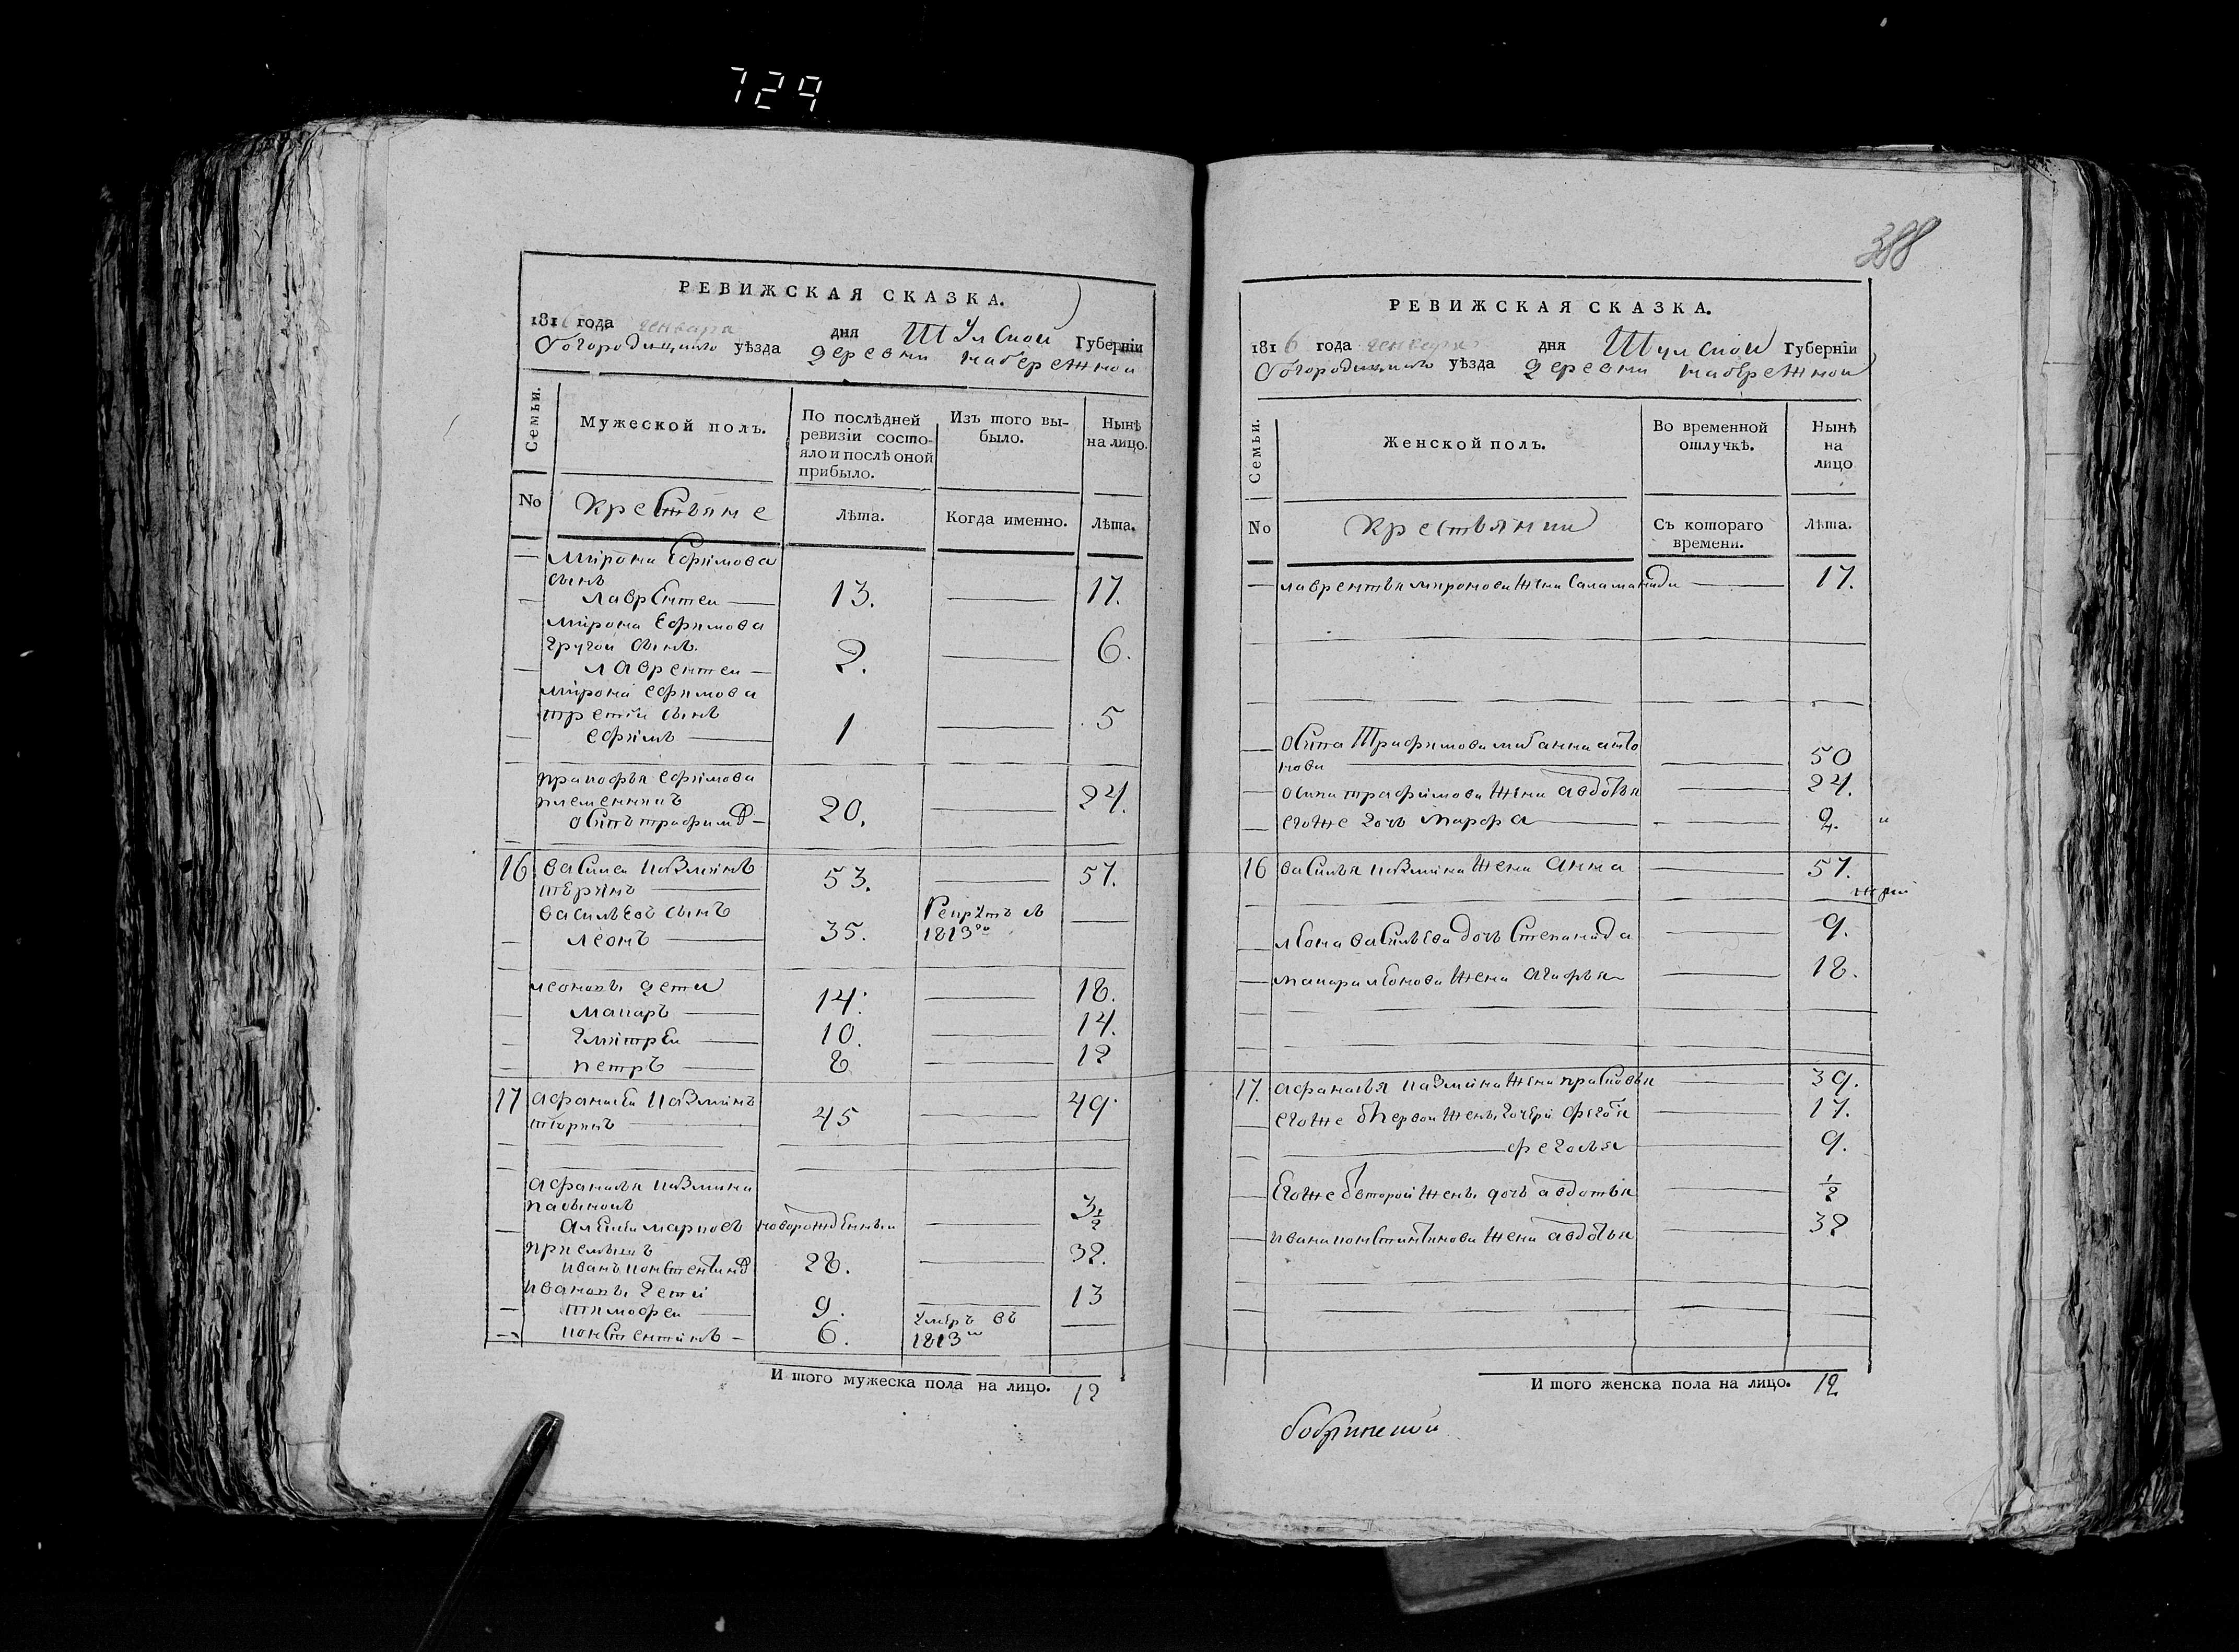 729
388
РЕВИЖСКАЯ СКАЗКА.
1816 года генваря дня Тулской Губернїи
Богородицкаго уѣзда деревни набережной
Семьи.
Мужеской полъ.
По послѣдней ревизїи состо-
яло и послѣ оной прибыло.
Изъ того вы-
было.
Нынѣ
на лицо.
No
Крестьяне
лѣта.
Когда именно.
Лѣта.
— Мирона Ефимова
сынъ
Лаврентеи — 13. — 17.
Мирона Ефимова
другои сынъ
— Лаврентеи — 2. — 6.
Мирона ефимова
третїи сынъ
— ефимъ — 1 — 5
пракофья ефимова
племенникъ
осипъ трафимов — 20. — 24.
16 василеи казминъ 53. — 57.
васильевъ сынъ
— леонъ — 35. Рекрутъ в
1813 —
леоновы дети
— макаръ — 14. — 18.
— дмитреи — 10. — 14.
— петръ — 8 — 12
17 афанасеи казминъ 45 — 49.
афанасья казмина
пасынокъ
— алексеи марковъ новорожденныи — 3 1/2
приемышъ
иванъ констентинов 28. — 32.
ивановы дети
— тимофеи — 9. — 13
— констентинъ — 6. умеръ въ
1813 —
И того мужеска пола на лицо. 12
РЕВИЖСКАЯ СКАЗКА.
1816 года генваря дня Тулской Губернїи
Богородицкаго уѣзда деревни набережной
Семьи.
Женской полъ.
Во временной
отлучкѣ.
Нынѣ
на
лицо
No
Крестьянки
Съ котораго
времени.
Лѣта.
— лаврентья миронова жена Саламанида — 17.
— осипа Трафимова мать анна анто
нова — 50
— осипа трафимова жена авдотья — 24.
— егоже дочь марфа — 2.
16 василья казмина жена анна — 57.
— леона васильева дочь Степанида — 9.
— макара леонова жена агафья — 18.
17. афанасья казмина жена прасковья — 39.
— егоже отпервой жены дочери федотья — 17.
— федосья — 9.
— егоже отвторой жены дочь авдотья — 1/2
— ивана констентинова жена авдотья — 32
И того женска пола на лицо. 12
бобринской